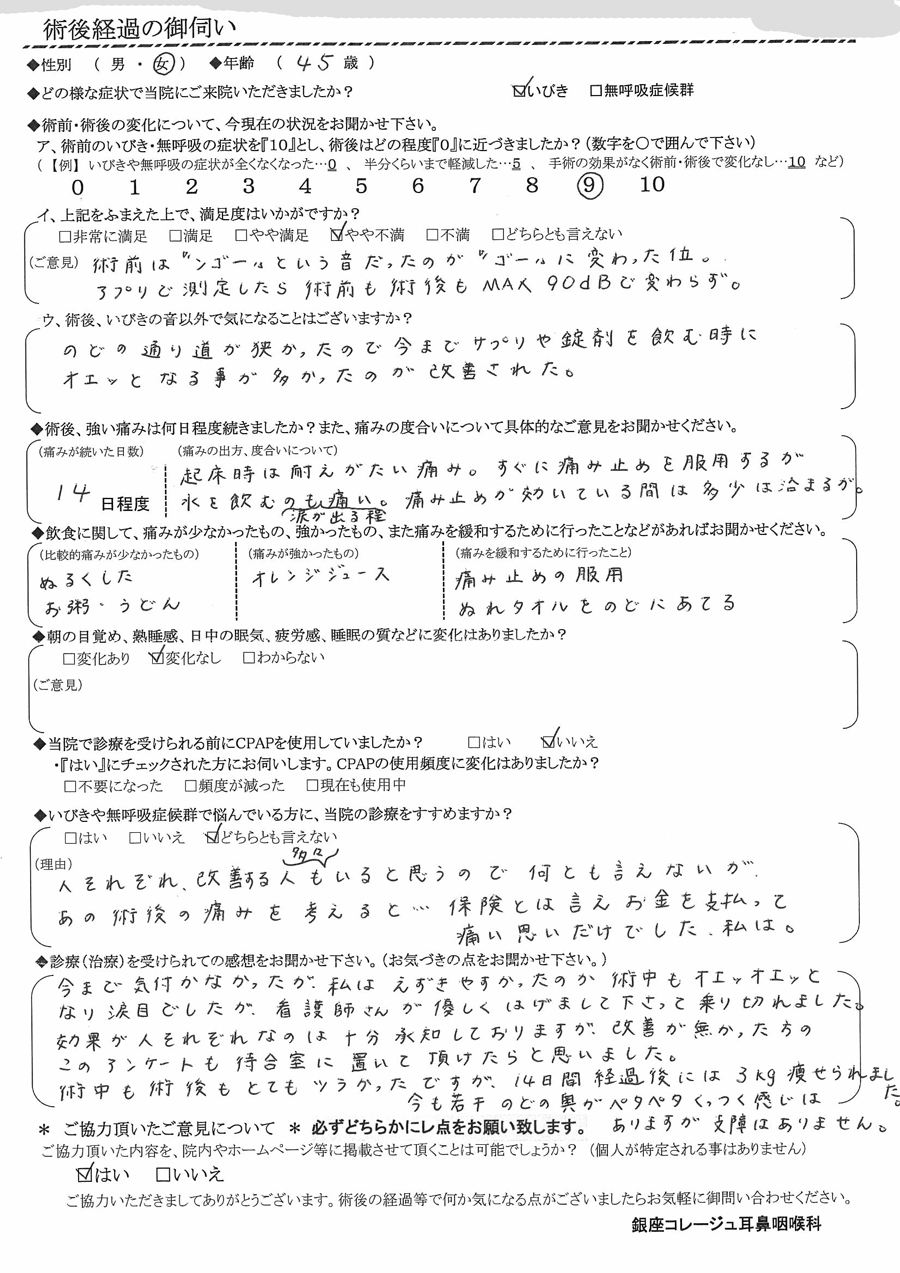 術後経過の御伺い
◆性別 ( 男 ・ 女 ) ◆年齢 ( 45 歳 )
◆どの様な症状で当院にご来院いただきましたか? ☑いびき □無呼吸症候群
◆術前・術後の変化について、今現在の状況をお聞かせ下さい。
ア、術前のいびき・無呼吸の症状を『10』とし、術後はどの程度『0』に近づきましたか?(数字を○で囲んで下さい)
(【例】いびきや無呼吸の症状が全くなくなった…0 、 半分くらいまで軽減した…5 、 手術の効果がなく術前・術後で変化なし…10 など)
0 1 2 3 4 5 6 7 8 ⑨ 10
イ、上記をふまえた上で、満足度はいかがですか?
□非常に満足 □満足 □やや満足 ☑やや不満 □不満 □どちらとも言えない
(ご意見) 術前は"ンゴー"という音だったのが"ゴー"に変わった位。
アプリで測定したら術前も術後もMAX 90dBで変わらず。
ウ、術後、いびきの音以外で気になることはございますか?
のどの通り道が狭かったので今までサプリや錠剤を飲む時に
オエッとなる事が多かったのが改善された。
◆術後、強い痛みは何日程度続きましたか?また、痛みの度合いについて具体的なご意見をお聞かせください。
(痛みが続いた日数) (痛みの出方、度合いについて)
起床時は耐えがたい痛み。すぐに痛み止めを服用するが
14 日程度 水を飲むのも痛い。痛み止めが効いている間は多少は治まるが。
涙が出る程
◆飲食に関して、痛みが少なかったもの、強かったもの、また痛みを緩和するために行ったことなどがあればお聞かせください。
(比較的痛みが少なかったもの) (痛みが強かったもの) (痛みを緩和するために行ったこと)
ぬるくした オレンジジュース 痛み止めの服用
お粥・うどん ぬれタオルをのどにあてる
◆朝の目覚め、熟睡感、日中の眠気、疲労感、睡眠の質などに変化はありましたか?
□変化あり ☑変化なし □わからない
(ご意見)
◆当院で診療を受けられる前にCPAPを使用していましたか? □はい ☑いいえ
・『はい』にチェックされた方にお伺いします。CPAPの使用頻度に変化はありましたか?
□不要になった □頻度が減った □現在も使用中
◆いびきや無呼吸症候群で悩んでいる方に、当院の診療をすすめますか?
□はい □いいえ ☑どちらとも言えない
(理由) 多々
人それぞれ、改善する人もいると思うので何とも言えないが、
あの術後の痛みを考えると… 保険とは言えお金を支払って
痛い思いだけでした、私は。
◆診療(治療)を受けられての感想をお聞かせ下さい。(お気づきの点をお聞かせ下さい。)
今まで気付かなかったが、私はえずきやすかったのか術中もオエッオエッと
なり涙目でしたが、看護師さんが優しくはげまして下さって乗り切れました。
効果が人それぞれなのは十分承知しておりますが、改善が無かった方の
このアンケートも待合室に置いて頂けたらと思いました。
術中も術後もとてもツラかったですが、14日間経過後には3kg痩せられました。
今も若干のどの奥がペタペタくっつく感じは
ありますが支障はありません。
* ご協力頂いたご意見について * 必ずどちらかにレ点をお願い致します。
ご協力頂いた内容を、院内やホームページ等に掲載させて頂くことは可能でしょうか?(個人が特定される事はありません)
☑はい □いいえ
ご協力いただきましてありがとうございます。術後の経過等で何か気になる点がございましたらお気軽に御問い合わせください。
銀座コレージュ耳鼻咽喉科